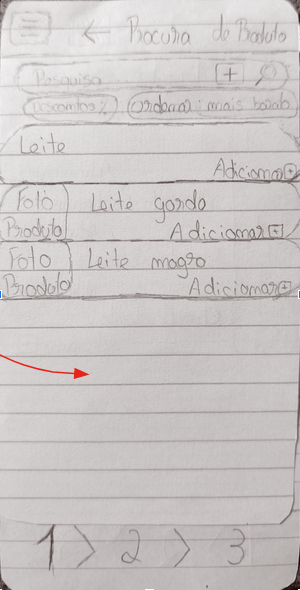 ← Procura de Produto
Pesquisa +
Descontos % Ordenar: mais barato
Leite
Adicionar +
Foto Produto
Leite gordo
Adicionar +
Foto Produto
Leite magro
Adicionar +
1 > 2 > 3